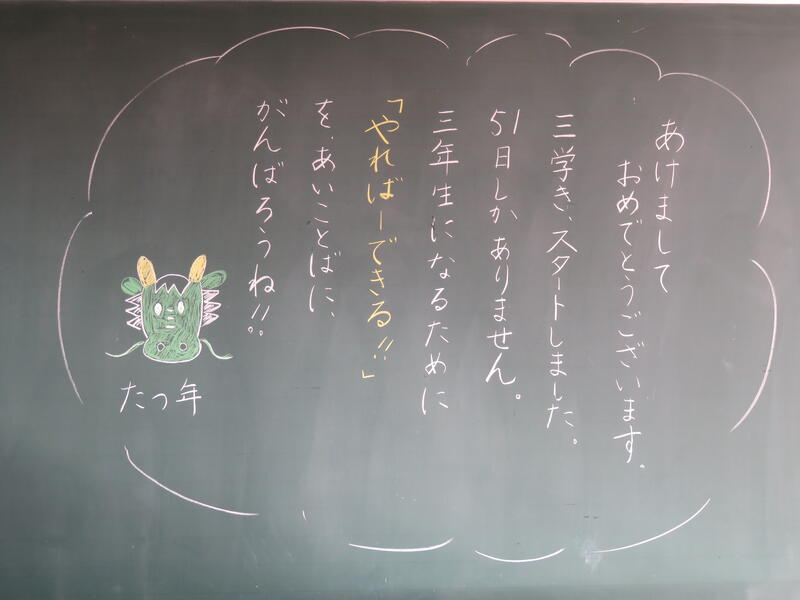 あけまして
おめでとうございます。
三学き、スタートしました。
51日しかありません。
三年生になるために
「やればーできる!!」
を、あいことばに、
がんばろうね!!
たつ年